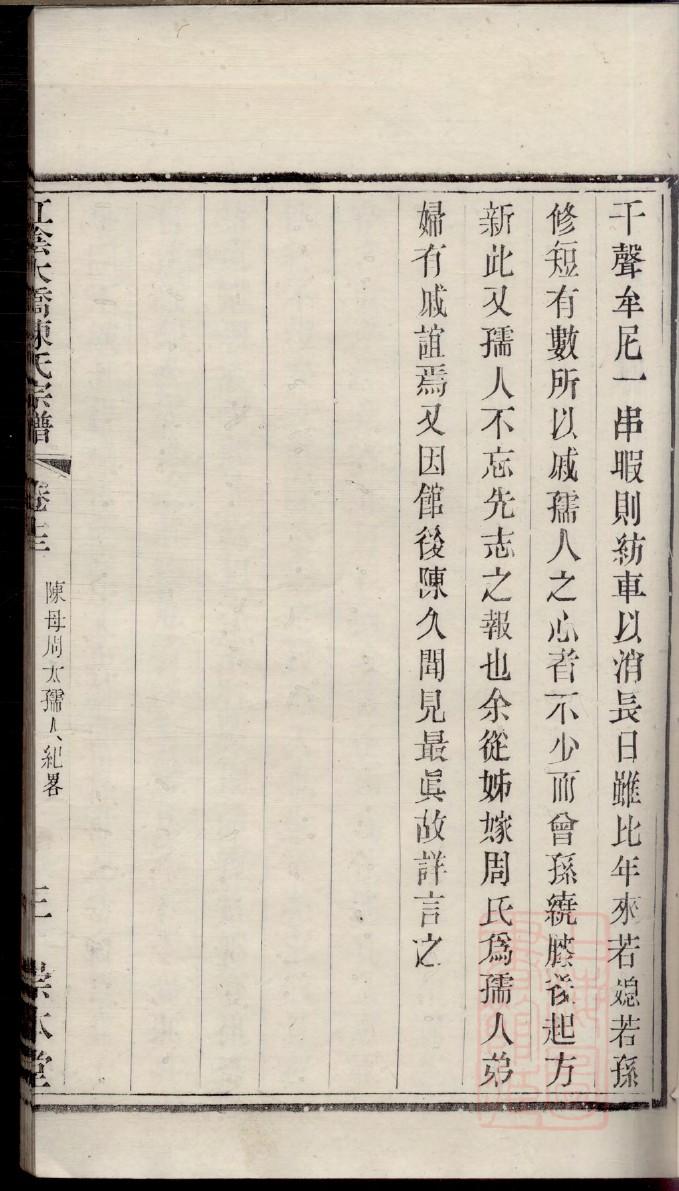 千聲牟尼一串暇則紡車以消長日雖比年來若媳若孫
修短有數所以戚孺人之心者不少而曾孫繞膝後起方
新此又孺人不忘先志之報也余從姊嫁周氏爲孺人弟
婦有戚誼焉又因館後陳久聞見最眞故詳言之
江陰大橋陳氏宗譜
卷十三
陳母周太孺人紀畧
三
崇本堂